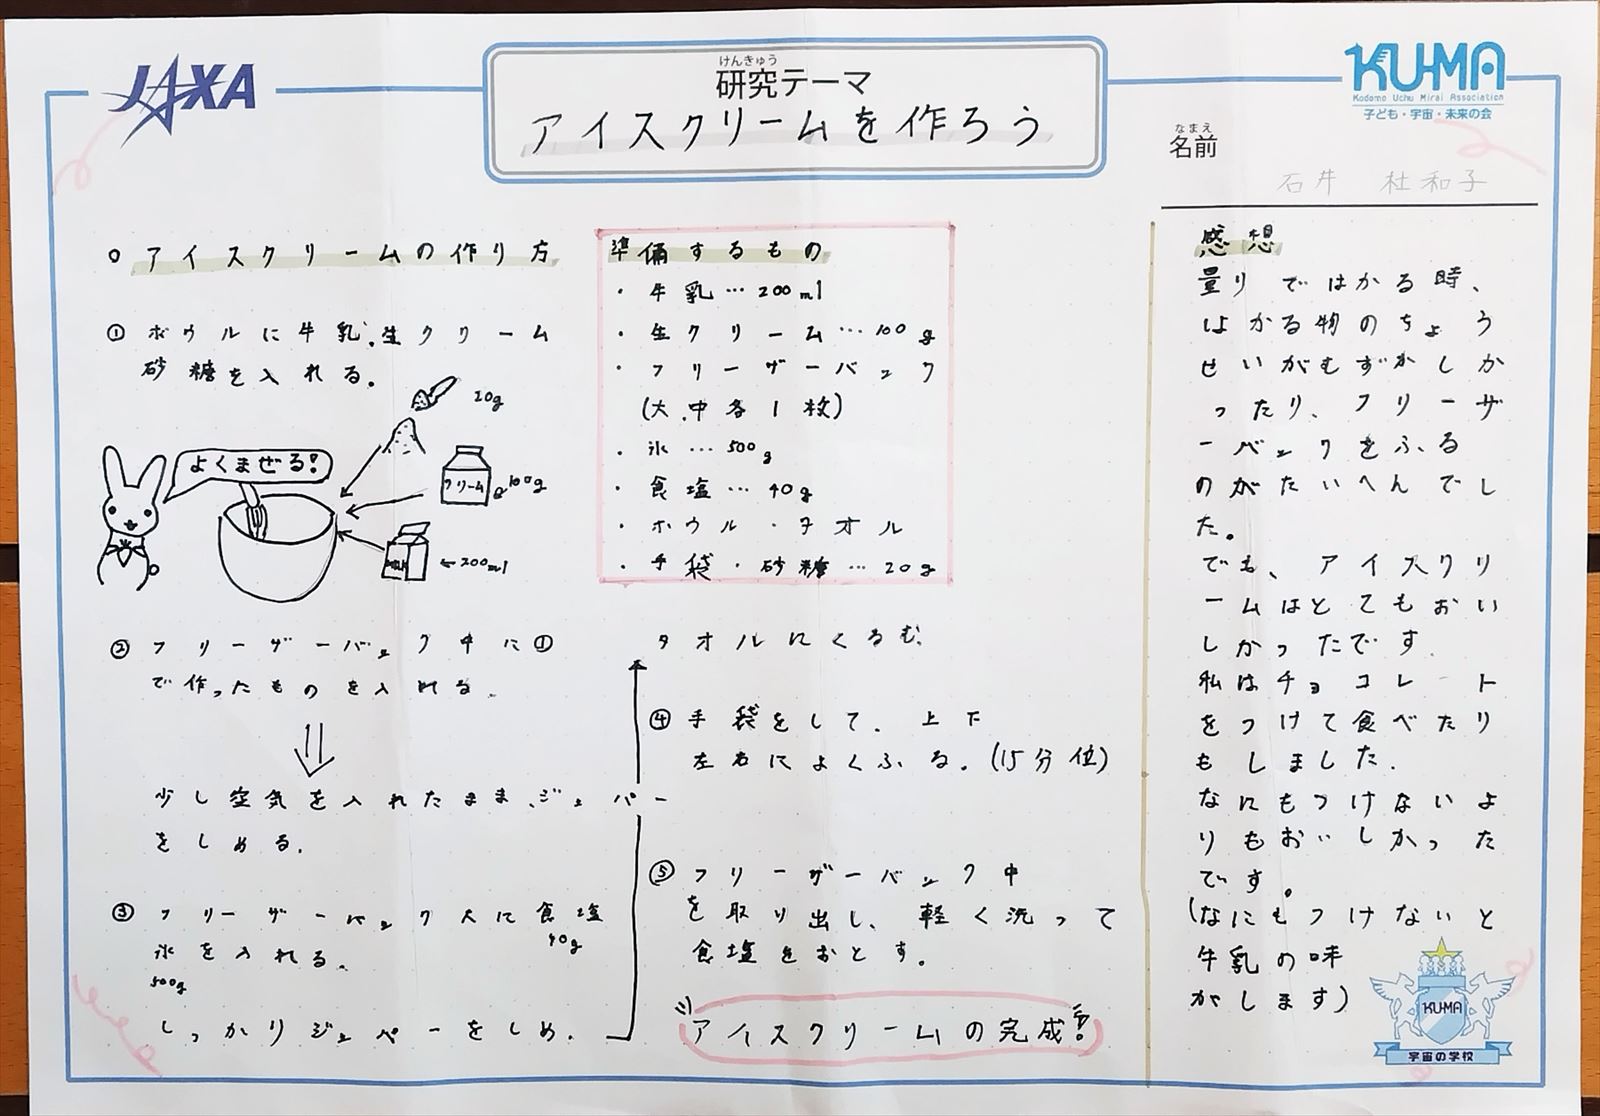 JAXA
けんきゅう
研究テーマ
アイスクリームを作ろう
KUMA
Kodomo Uchu Mirai Association
子ども・宇宙・未来の会
なまえ
名前
石井 杜和子
○アイスクリームの作り方
①ボウルに牛乳、生クリーム
砂糖を入れる。
20g
よくまぜる!
クリーム
100g
MILK
←200ml
②フリーザーバック中に①
で作ったものを入れる。
少し空気を入れたまま、ジッパー
をしめる。
③フリーザーバック大に食塩
40g
氷を入れる。
500g
しっかりジッペーをしめ、
準備するもの
・牛乳…200ml
・生クリーム…100g
・フリーザーバック
(大、中各1枚)
・氷…500g
・食塩…40g
・ボウル・タオル
・手袋・砂糖…20g
タオルにくるむ。
④手袋をして、上下
左右によくふる。(15分位)
⑤フリーザーバック中
を取り出し、軽く洗って
食塩をおとす。
アイスクリームの完成!
感想
量りではかる時、
はかる物のちょう
せいがむずかしか
ったり、フリーザ
ーバックをふる
のがたいへんでし
た。
でも、アイスクリ
ームはとてもおい
しかったです。
私はチョコレート
をつけて食べたり
もしました。
なにもつけないよ
りもおいしかった
です。
(なにもつけないと
牛乳の味
がします)
KUMA
宇宙の学校